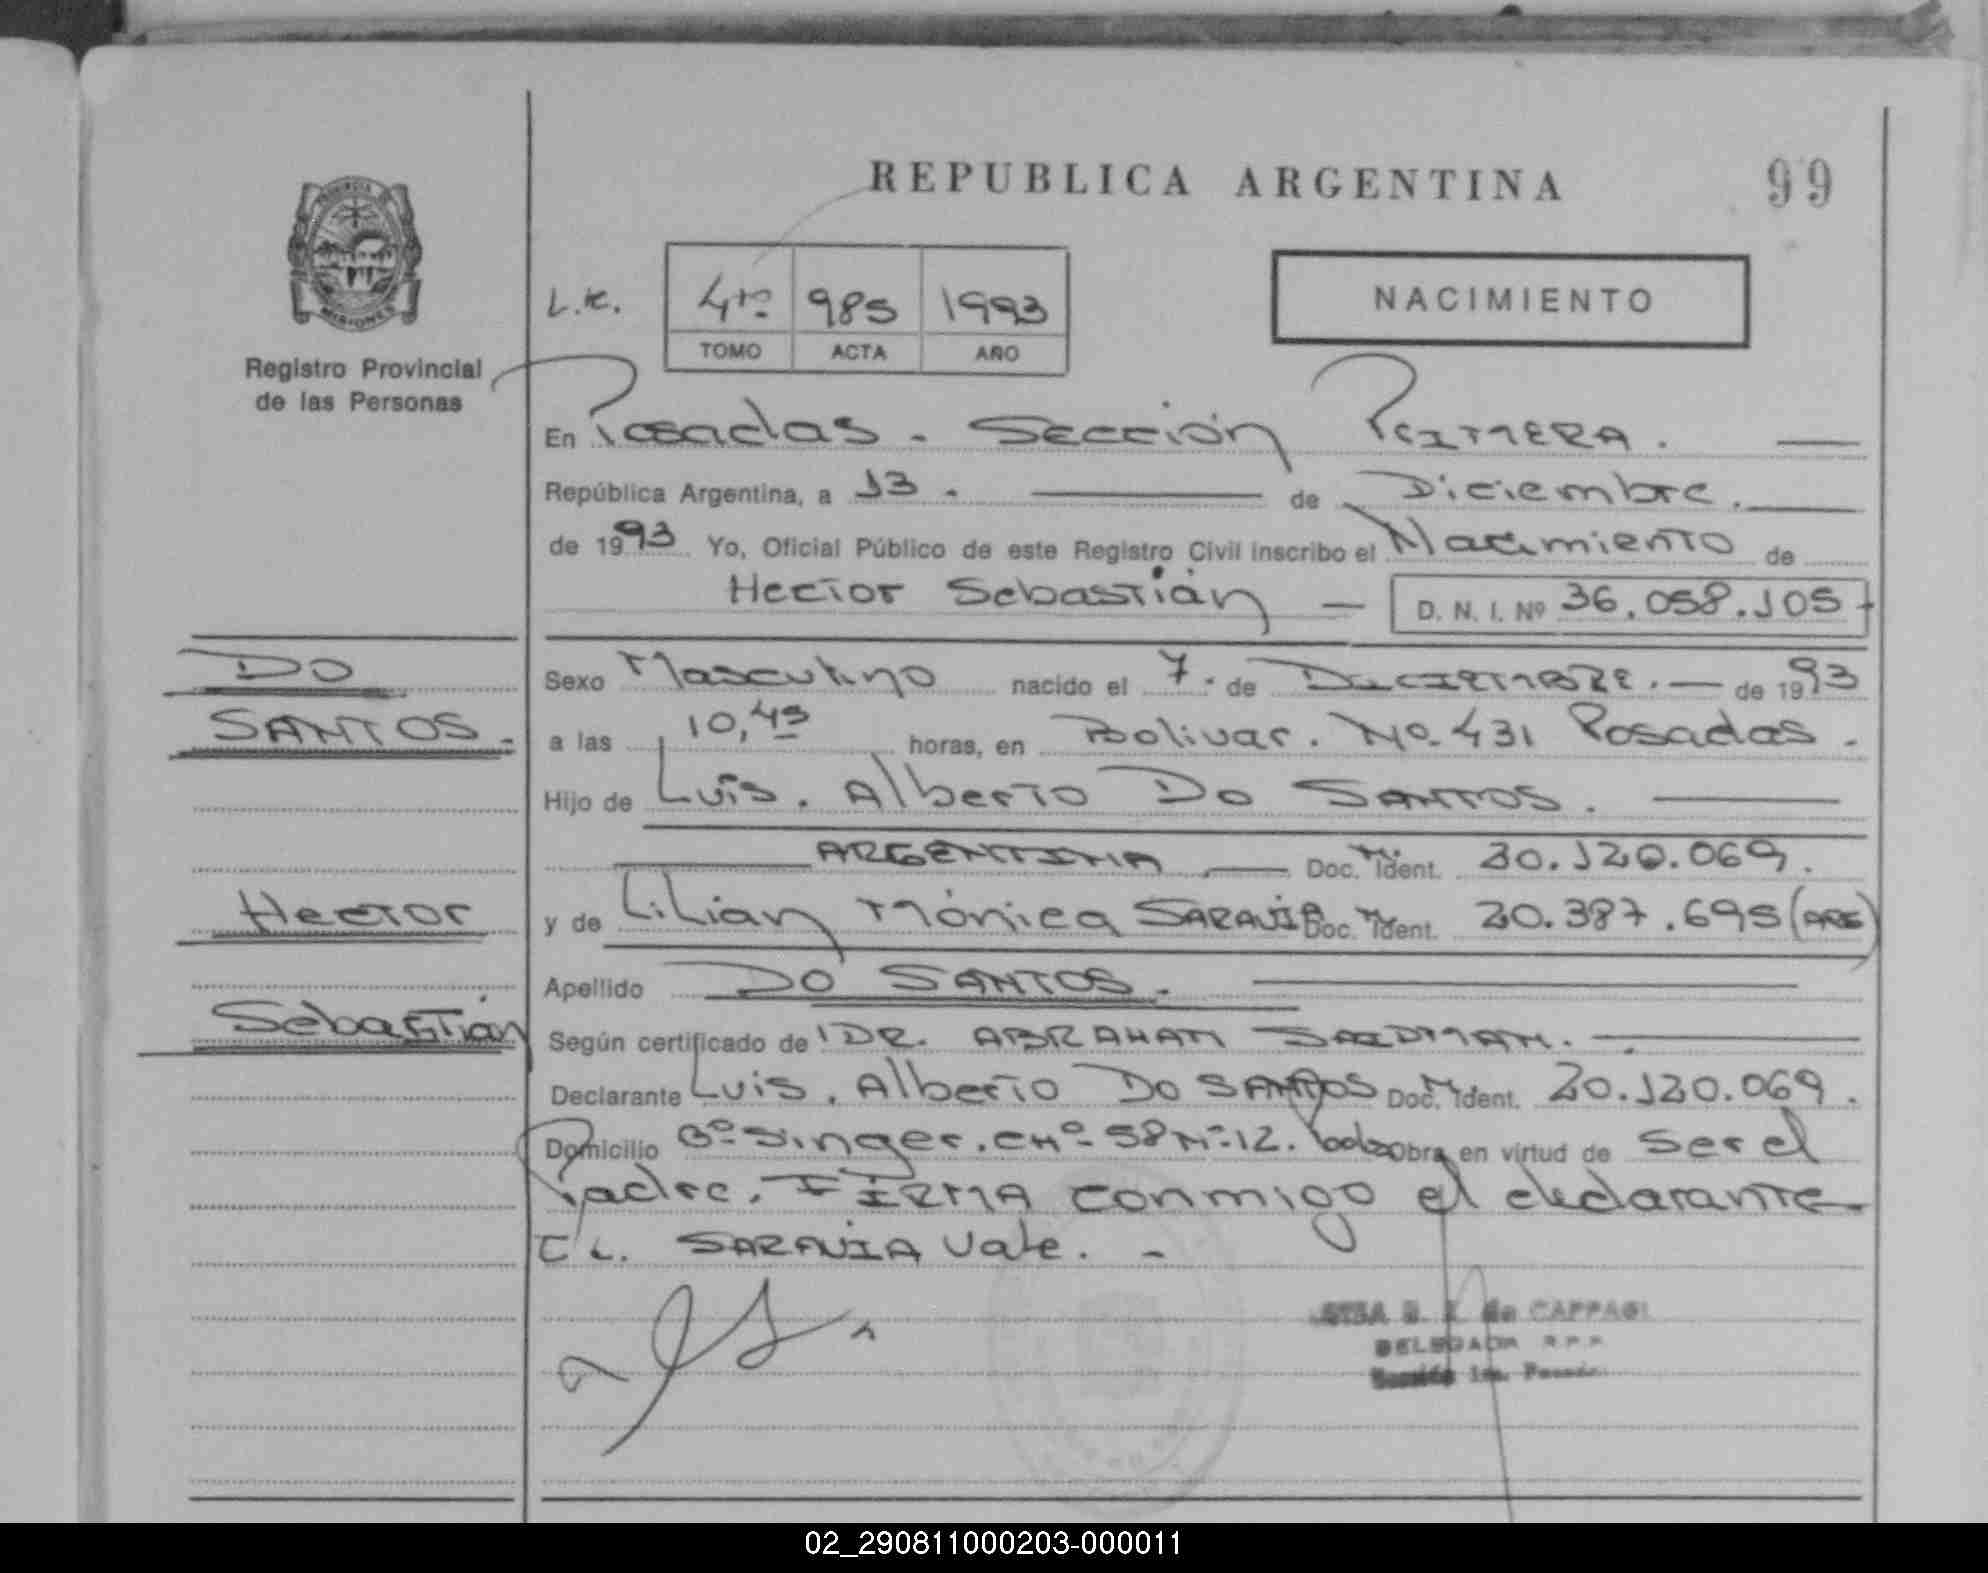 REPUBLICA ARGENTINA
99
PROVINCIA
MISIONES
Registro Provincial
de las Personas
4to 985 1993
TOMO ACTA AÑO
NACIMIENTO
En Posadas. Sección Primera.
República Argentina, a 13. de Diciembre.
de 1993 Yo, Oficial Público de este Registro Civil inscribo el Nacimiento de
Hector Sebastián D. N. I. Nº 36.058.105
DO
SANTOS.
Hector
Sebastián
Sexo Masculino nacido el 7. de DICIEMBRE. de 1993
a las 10,45 horas, en Bolivar. Nº 431 Posadas.
Hijo de Luis. Alberto Do SANTOS.
ARGENTINA Doc. M. Ident. 20.120.069.
y de Lilian Mónica SARAVIA Doc. M. Ident. 20.387.695 (ARG)
Apellido DO SANTOS.
Según certificado de DR. ABRAHAM SAIDMAN.
Declarante Luis. Alberto Do SANTOS Doc. M. Ident. 20.120.069.
Domicilio Bº Singer. CHº 58 Nº 12. Pdas Obra en virtud de ser el
Padre. FIRMA conmigo el declarante
SARAVIA Vale.
de CAPPAGLI
DELEGADA R.P.P.
Sección 1ra.
02_290811000203-000011